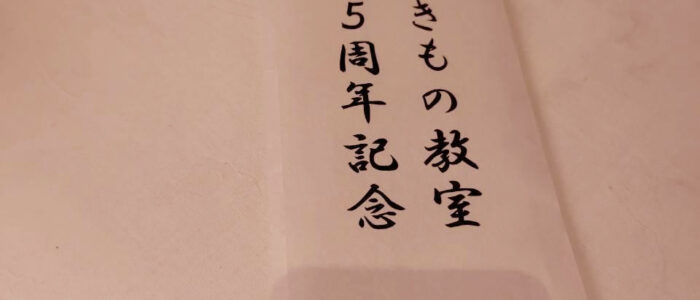 きもの教室
5周年記念